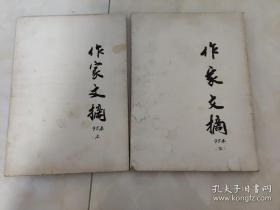 作家文摘
95年
上
作家文摘
95年
孔夫子旧书网